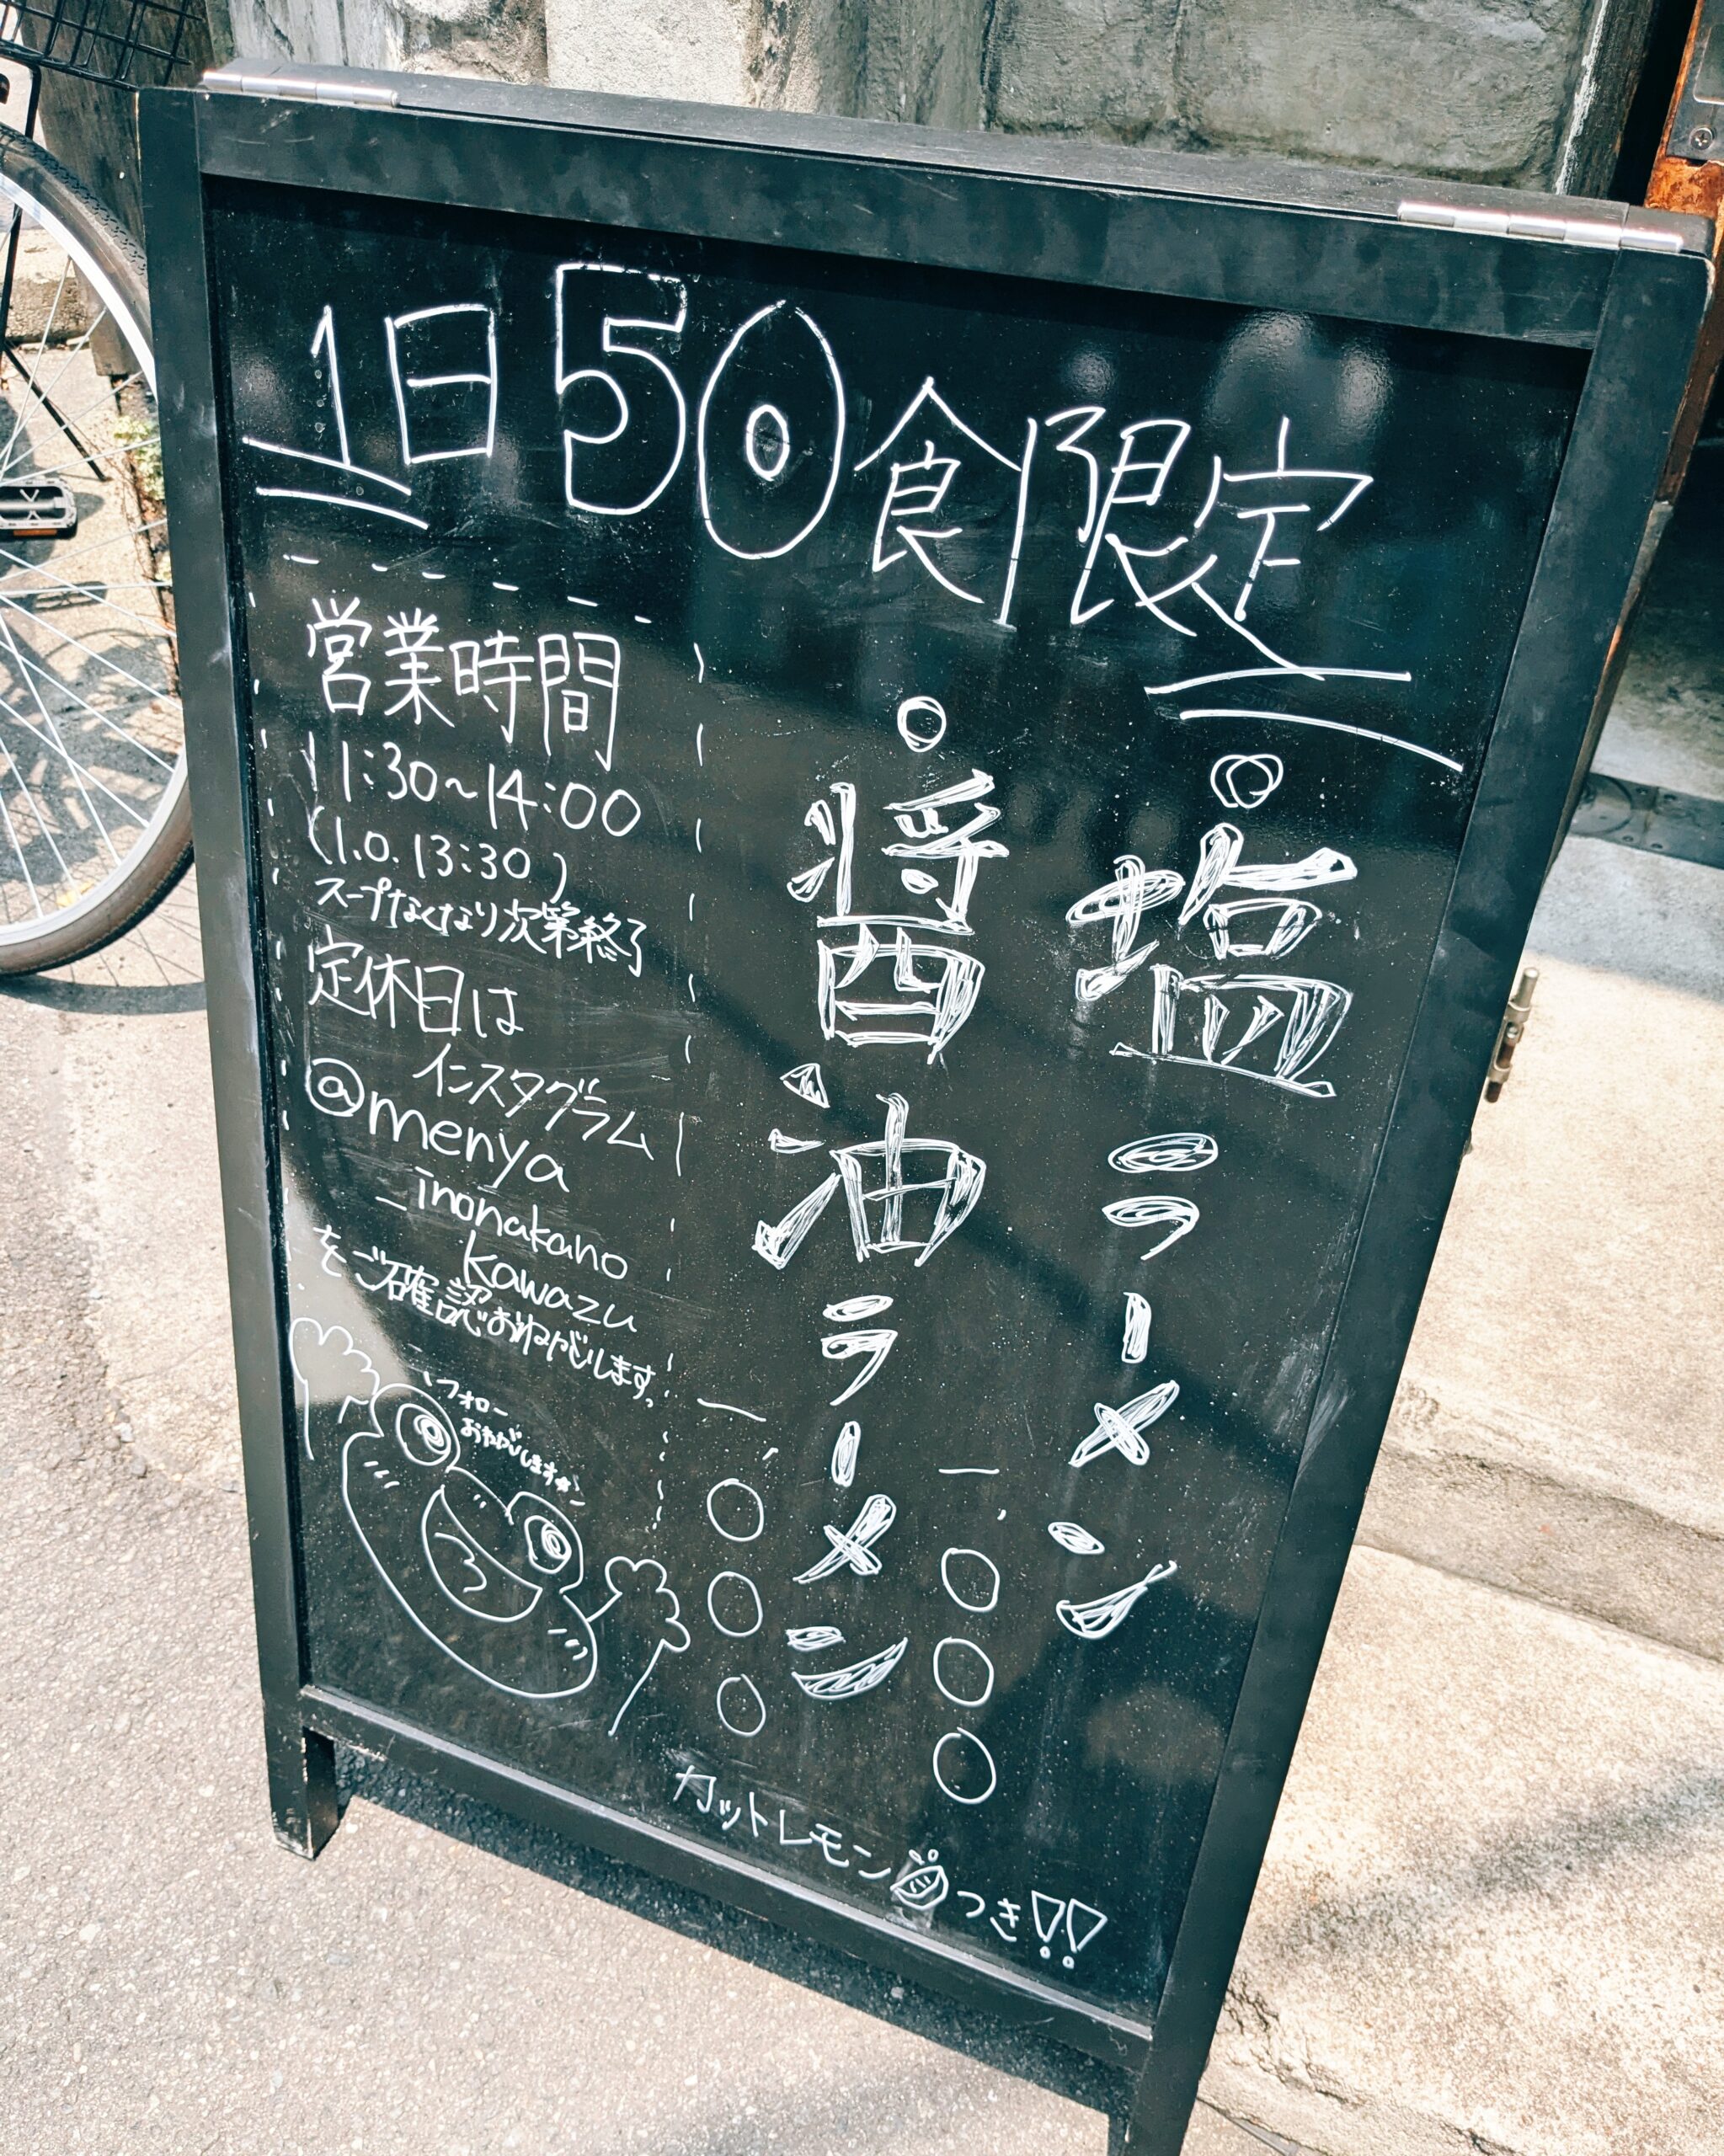 1日50食限定
・塩ラーメン
一、〇〇〇
・醤油ラーメン
一、〇〇〇
カットレモンつき!!
営業時間
11:30~14:00
(l.o. 13:30)
スープなくなり次第終了
定休日は
インスタグラム
@menya
_inonakano
kawazu
をご確認おねがいします。
フォロー
おねがいします☆